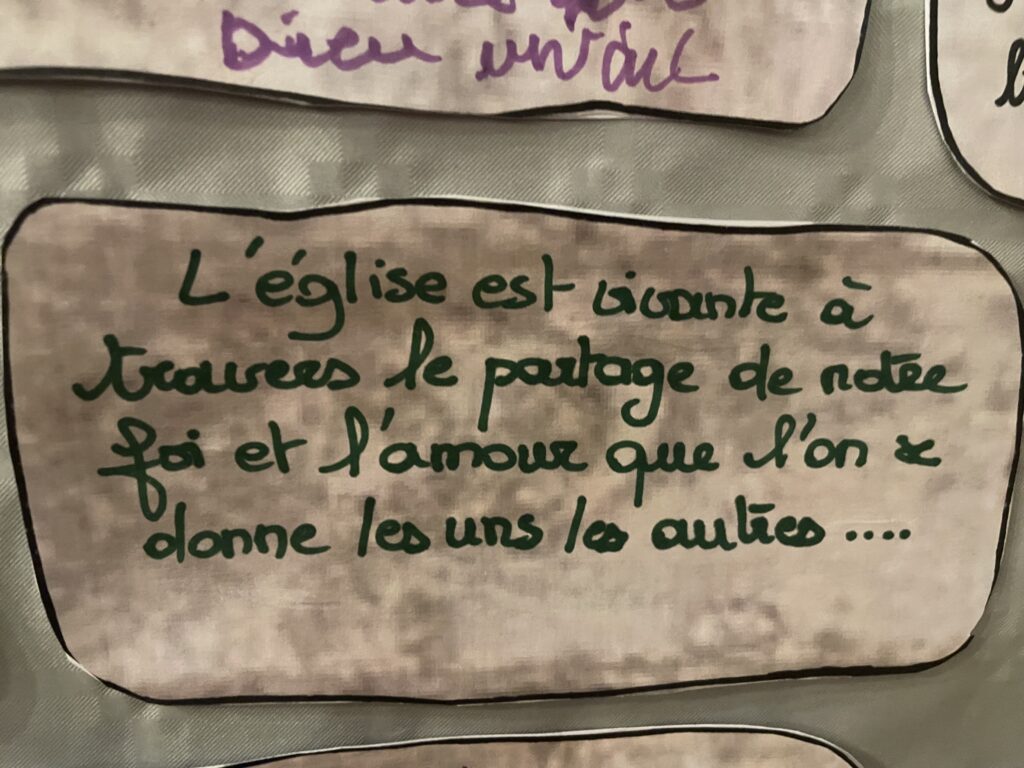 Dieu
L'église est vivante à
travers le partage de notre
foi et l'amour que l'on se
donne les uns les autres ....